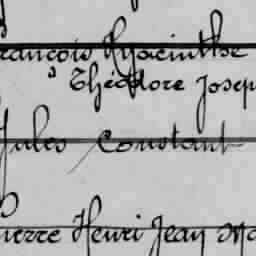 François Hyacinthe
Théodore Josep
Jules Constant
Pierre Henri Jean Ma